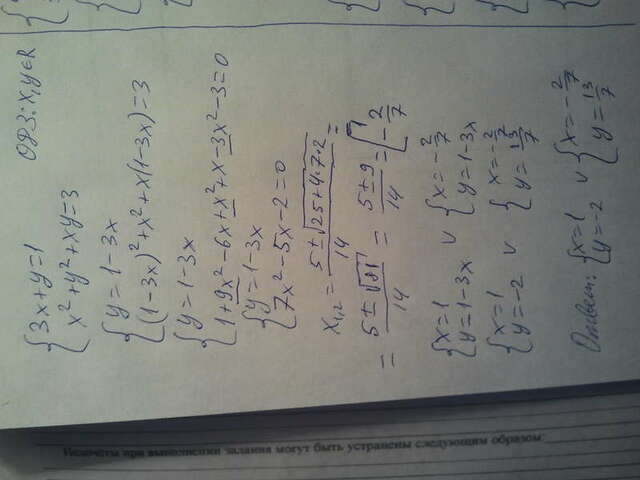 {3x+y=1 ОДЗ: x,y∈R
{x²+y²+xy=3
{y=1-3x
{(1-3x)²+x²+x(1-3x)=3
{y=1-3x
{1+9x²-6x+x²+x-3x²-3=0
{y=1-3x
{7x²-5x-2=0
x₁,₂ = (5±√(25+4·7·2))/14 =
= (5±√81)/14 = (5±9)/14 = [1; -2/7
{x=1 ∨ {x=-2/7
{y=1-3x {y=1-3x
{x=1 ∨ {x=-2/7
{y=-2 {y=13/7
Ответ: {x=1 ∨ {x=-2/7
{y=-2 {y=13/7
Недочеты при выполнении задания могут быть устранены следующим образом: